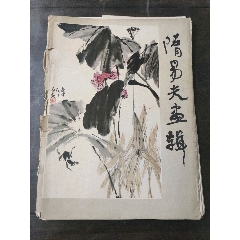 隋易夫画辑